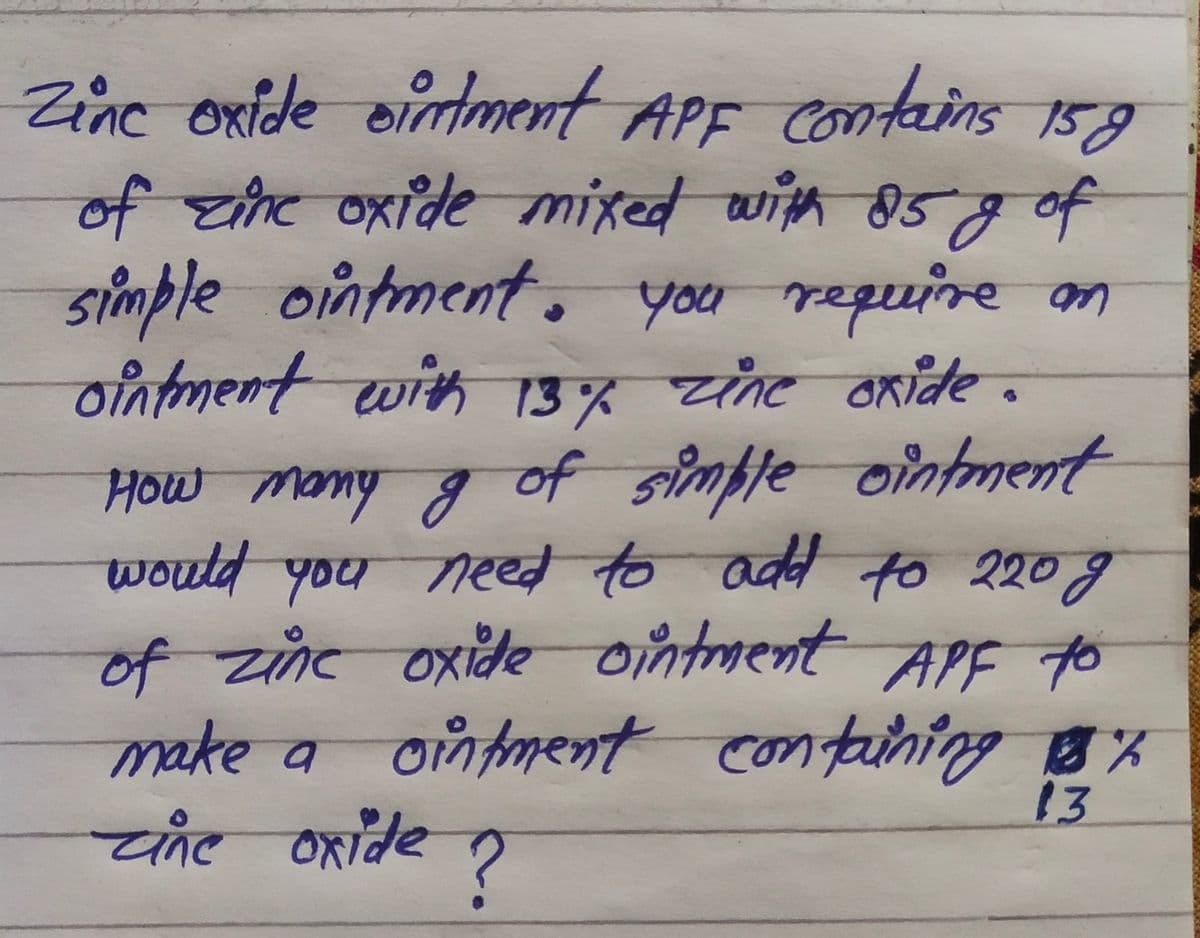 Zinc oxide ointment APF contains 15g
of zinc oxide mixed with 85 g of
simple ointment. you require an
ointment with 13% zinc oxide.
How many g of simple ointment
would you need to add to 220 g
of zinc oxide ointment APF to
make a ointment containing %
13
zinc oxide ?